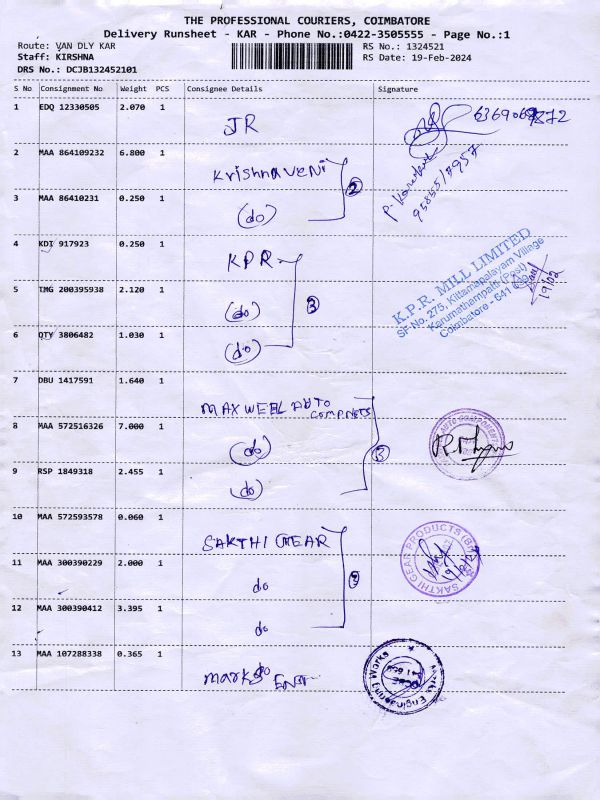 THE PROFESSIONAL COURIERS, COIMBATORE
Delivery Runsheet - KAR - Phone No.:0422-3505555 - Page No.:1
Route: VAN DLY KAR
Staff: KIRSHNA
DRS No.: DCJB132452101
RS No.: 1324521
RS Date: 19-Feb-2024
S No Consignment No Weight PCS Consignee Details Signature
1 EDQ 12330505 2.070 1 JR
2 MAA 864109232 6.800 1 Krishnaveni
3 MAA 86410231 0.250 1 (do)
2
95855
4 KDI 917923 0.250 1 KPR
5 TMG 200395938 2.120 1 (do)
6 QTY 3806482 1.030 1 (do)
3
K.P.R. MILL LIMITED
SF No. 275, Kittampalayam Village
Karumathampatti (Post)
Coimbatore - 641
19/02
7 DBU 1417591 1.640 1 MAXWELL AUTO COMPNETS
8 MAA 572516326 7.000 1 (do)
9 RSP 1849318 2.455 1 (do)
3
AUTO COMPONENTS
10 MAA 572593578 0.060 1 SAKTHI GEAR
11 MAA 300390229 2.000 1 do
12 MAA 300390412 3.395 1 do
SAKTHI GEAR PRODUCTS
13 MAA 107288338 0.365 1 Marks Engg
Engineering Works